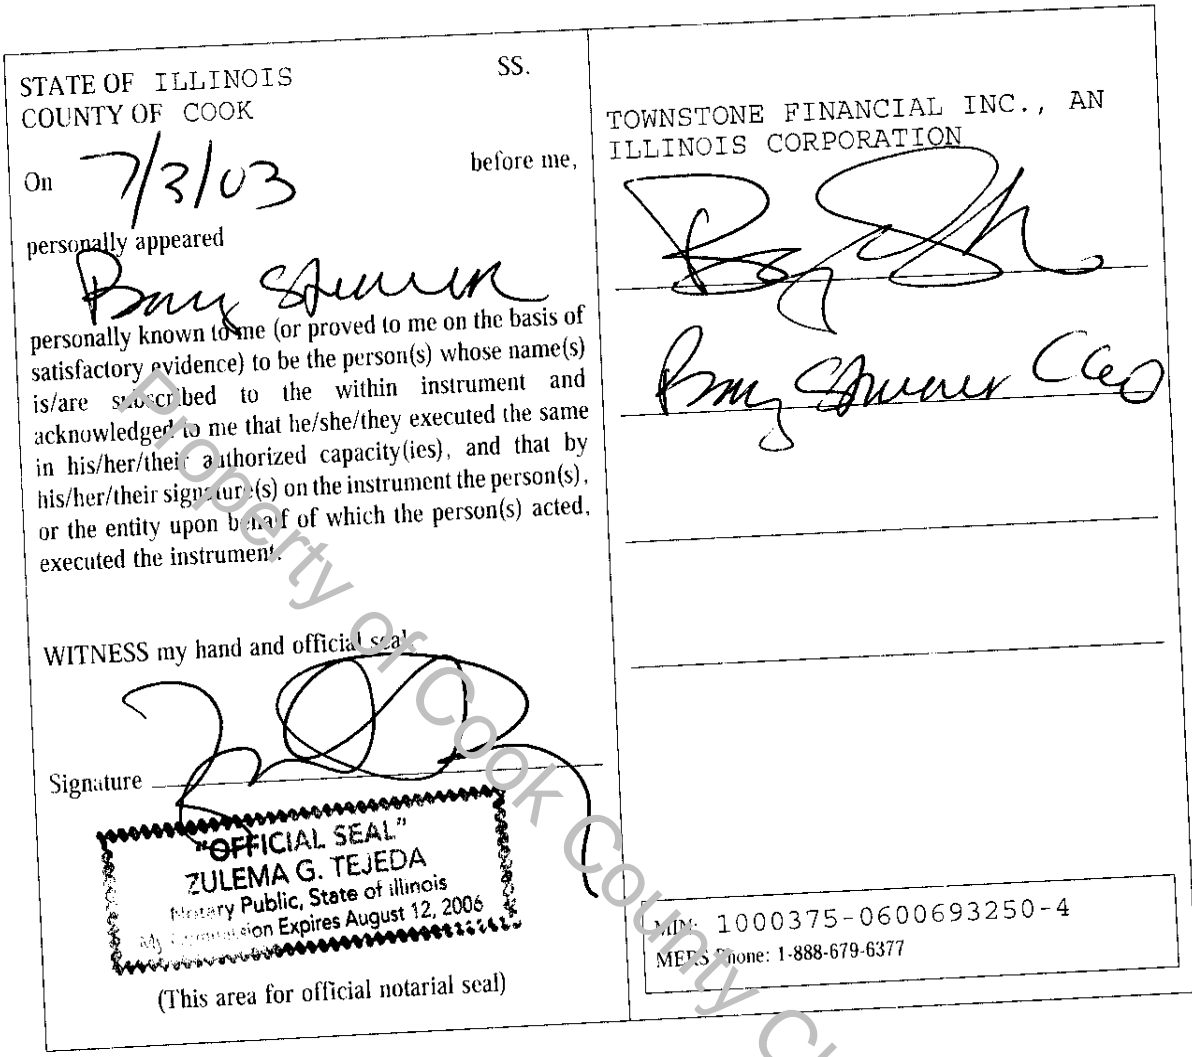 STATE OF ILLINOIS SS.
COUNTY OF COOK
On 7/3/03 before me,
personally appeared
Barry Sturner
personally known to me (or proved to me on the basis of
satisfactory evidence) to be the person(s) whose name(s)
is/are subscribed to the within instrument and
acknowledged to me that he/she/they executed the same
in his/her/their authorized capacity(ies), and that by
his/her/their signature(s) on the instrument the person(s),
or the entity upon behalf of which the person(s) acted,
executed the instrument.
WITNESS my hand and official seal.
Signature
"OFFICIAL SEAL"
ZULEMA G. TEJEDA
Notary Public, State of illinois
My Commission Expires August 12, 2006
(This area for official notarial seal)
TOWNSTONE FINANCIAL INC., AN
ILLINOIS CORPORATION
Barry Sturner CEO
MIN: 1000375-0600693250-4
MERS Phone: 1-888-679-6377
Property of Cook County